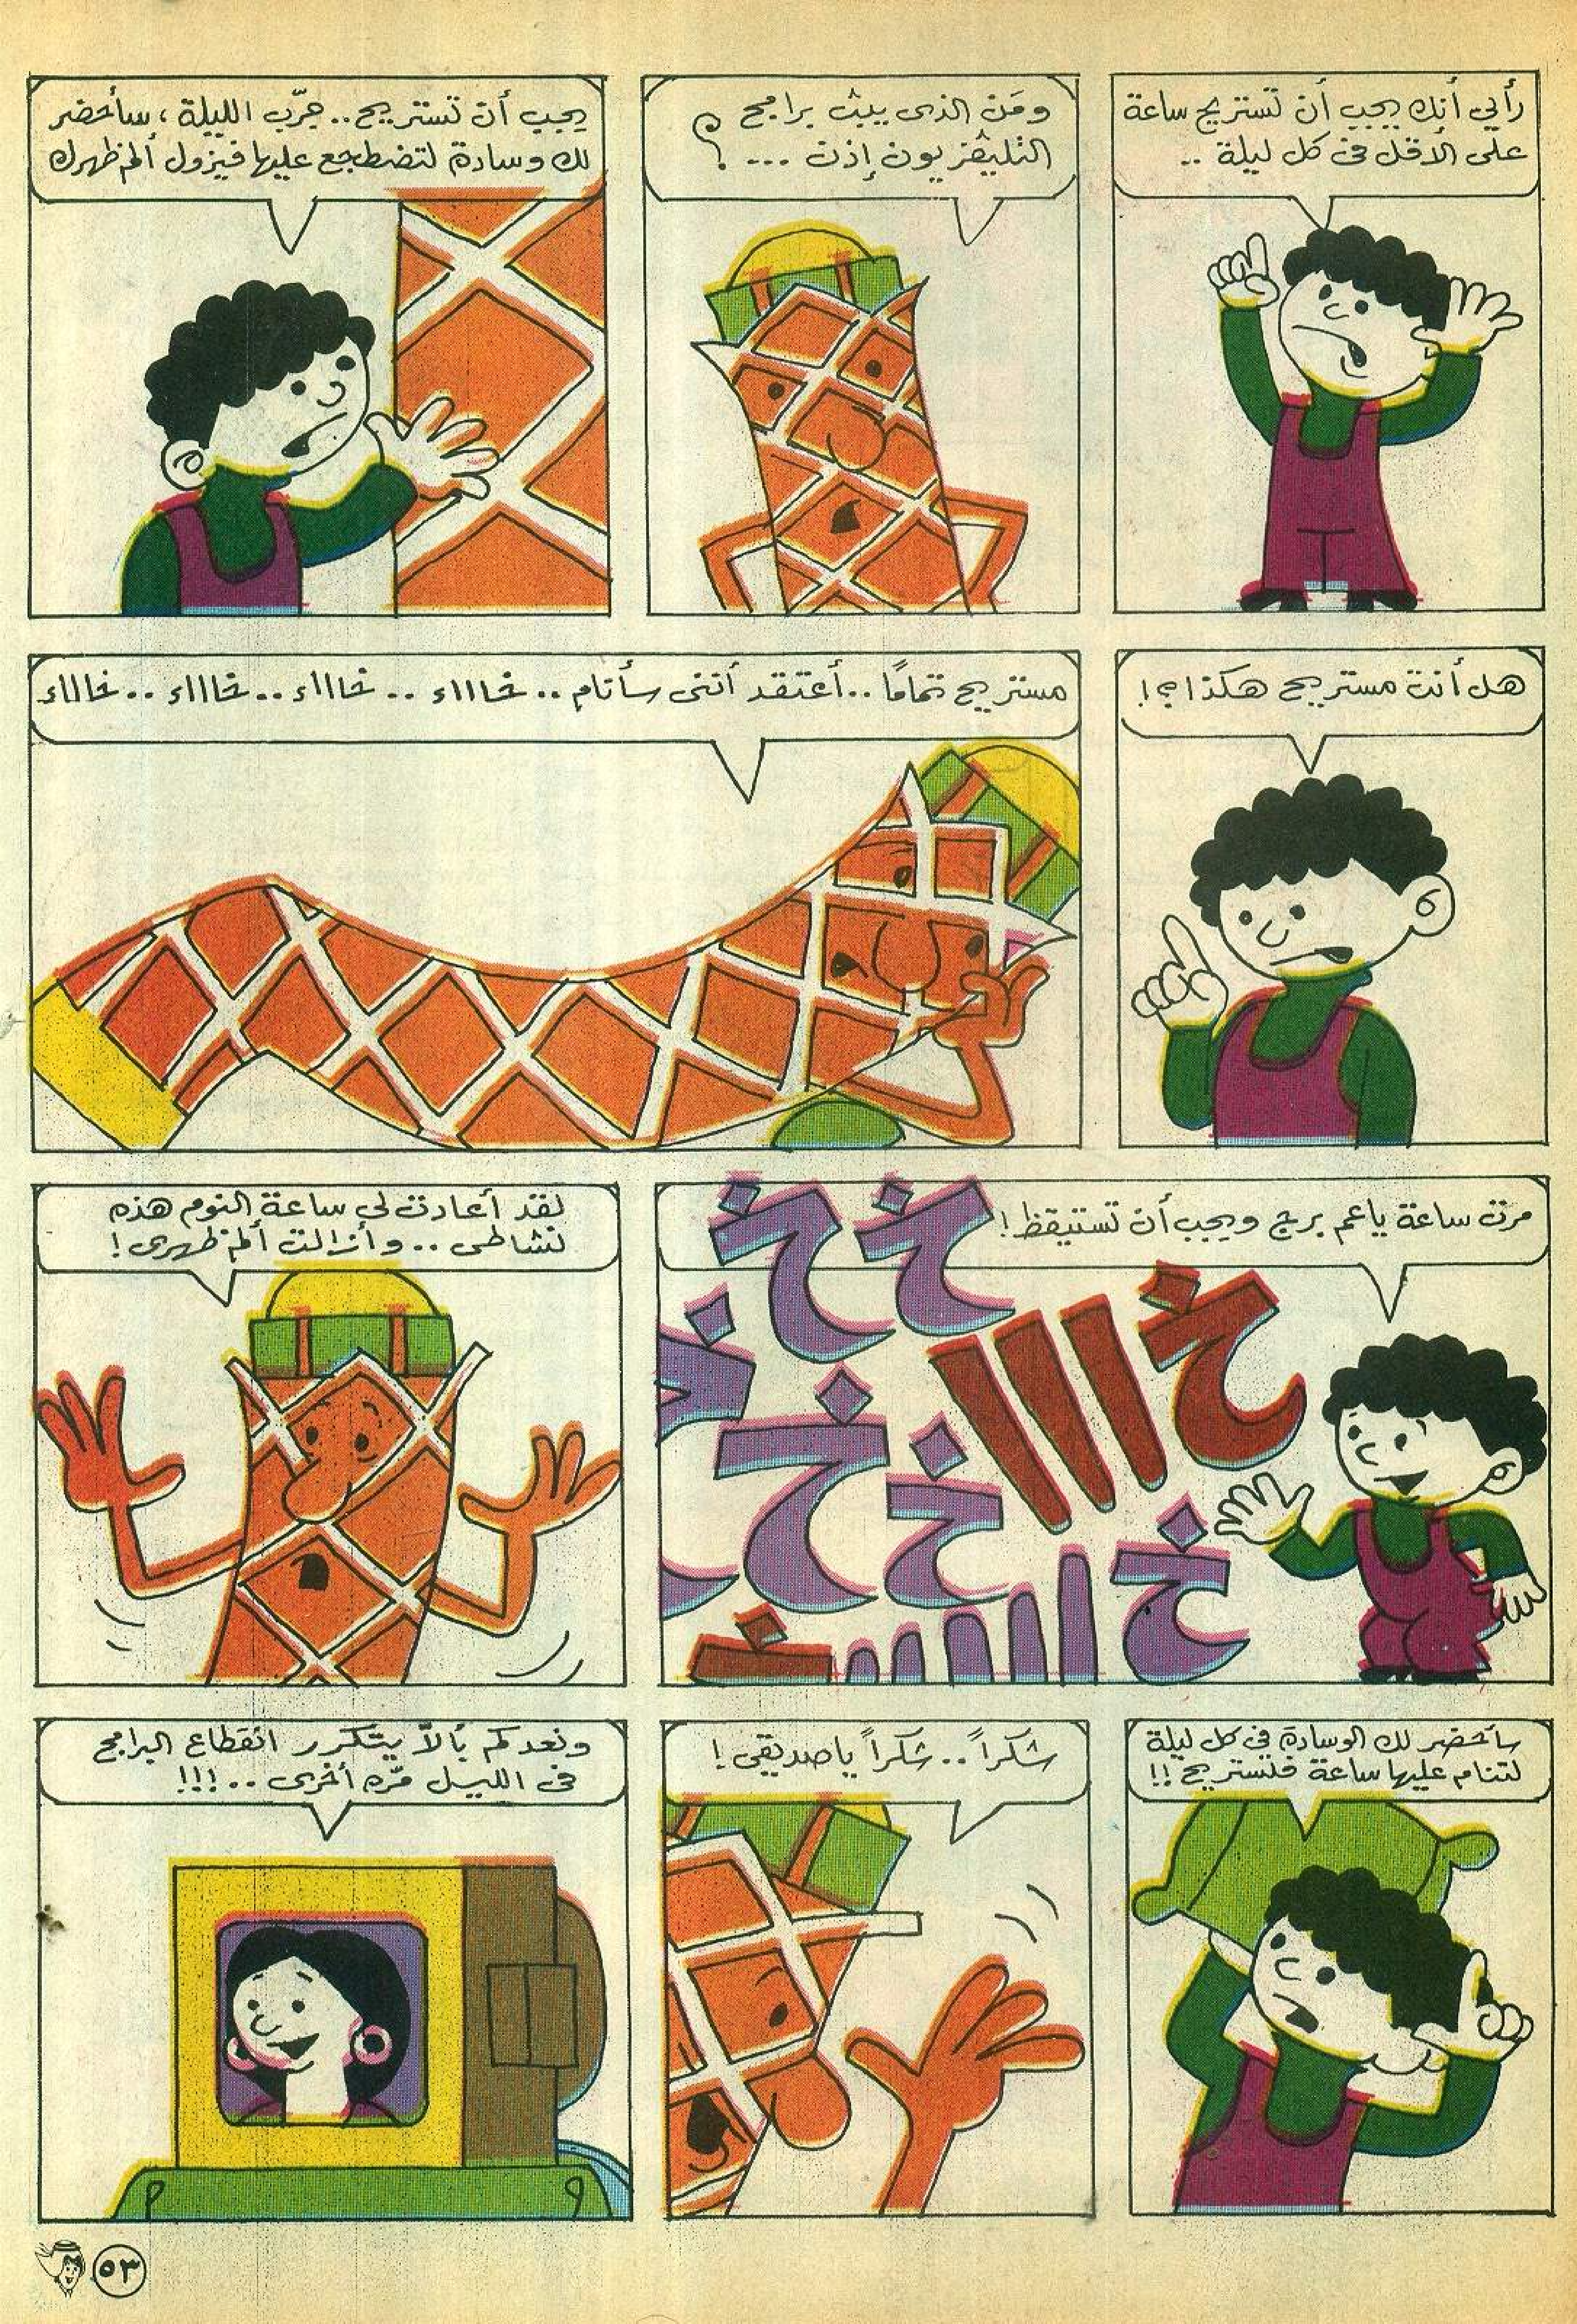 رأيي أنك يجب أن تستريح ساعة
على الأقل في كل ليلة ..
ومَن الذى يبث برامج
التليفزيون إذن ... ؟
يجب أن تستريح .. جرّب الليلة ، سأحضر
لك وسادة لتضطجع عليها فيزول ألم ظهرك
هل أنت مستريح هكذا ؟!
مستريح تمامًا .. أعتقد أننى سأنام .. خااااء .. خااااء .. خااااء .. خااااء
مرت ساعة ياعم برج ويجب أن تستيقظ !
خ خ
خ ااا
خ خ
خ ااا
لقد أعادت لى ساعة النوم هذه
نشاطى .. وأزالت ألم ظهرى !
سأحضر لك الوسادة في كل ليلة
لتنام عليها ساعة فلستريح !!
شكراً .. شكراً ياصديقى !
ونعدكم بألاّ يتكرر انقطاع البرامج
فى الليل مّره أخرى .. !!!
٥٣